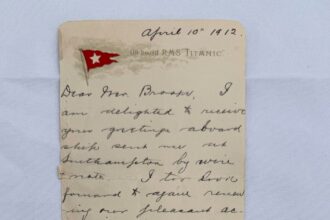 April 10th 1912.
On board R.M.S. TITANIC.
Dear Mr. Brosor, I
am delighted to receive
your greetings aboard
ship sent me at
Southampton by wire
& note. I too look
forward to again renew
ing our pleasant ac